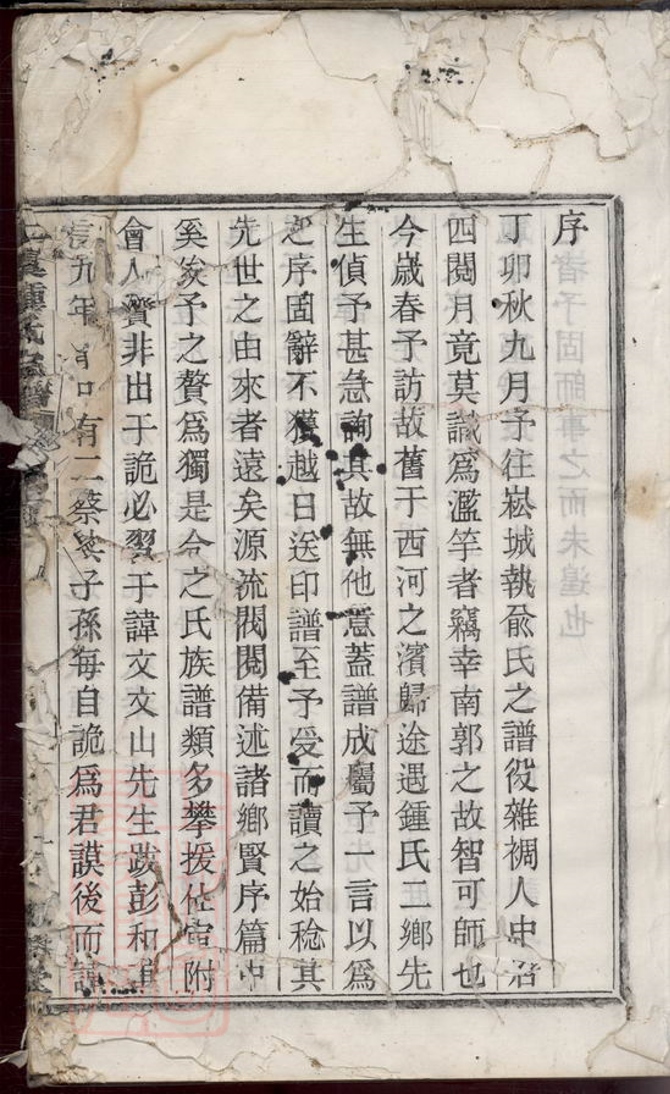 序
丁卯秋九月予往崧城執俞氏之譜役雜裯人中居
四閱月竟莫識爲濫竽者竊幸南郭之故智可師也
今歲春予訪故舊于西河之濱歸途遇鍾氏二鄉先
生偵予甚急詢其故無他意蓋譜成屬予一言以爲
之序固辭不獲越日送印譜至予受而讀之始稔其
先世之由來者遠矣源流閥閱備述諸鄉賢序篇中
奚俟予之贅爲獨是今之氏族譜類多攀援仕宦附
會人賢非出于詭必習于諱文文山先生跋彭和
九年有二蔡其子孫每自詭爲君謨後而諱